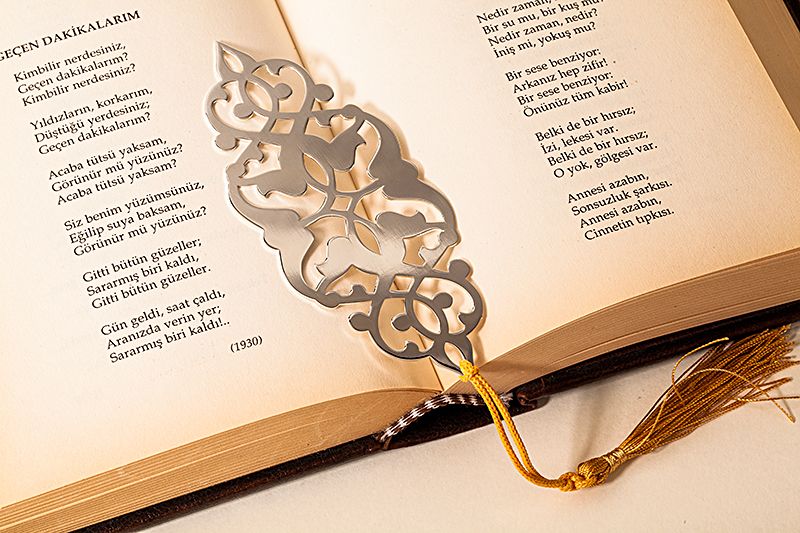 GEÇEN DAKİKALARIM
Kimbilir nerdesiniz,
Geçen dakikalarım?
Kimbilir nerdesiniz?
Yıldızların, korkarım,
Düştüğü yerdesiniz;
Geçen dakikalarım?
Acaba tütsü yaksam,
Görünür mü yüzünüz?
Acaba tütsü yaksam?
Siz benim yüzümsünüz,
Eğilip suya baksam,
Görünür mü yüzünüz?
Gitti bütün güzeller;
Sararmış biri kaldı,
Gitti bütün güzeller.
Gün geldi, saat çaldı,
Aranızda verin yer;
Sararmış biri kaldı!..
(1930)
Nedir zaman, nedir?
Bir su mu, bir kuş mu?
Nedir zaman, nedir?
İniş mi, yokuş mu?
Bir sese benziyor;
Arkanız hep zifir!
Bir sese benziyor;
Önünüz tüm kabir!
Belki de bir hırsız;
İzi, lekesi var.
Belki de bir hırsız;
O yok, gölgesi var.
Annesi azabın,
Sonsuzluk şarkısı.
Annesi azabın,
Cinnetin tıpkısı.